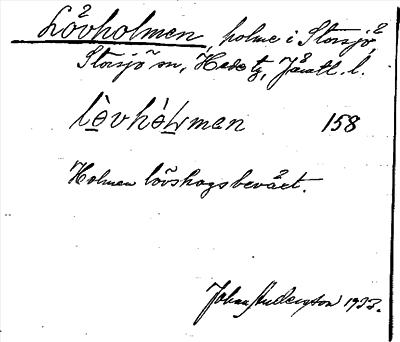 Lövholmen, holme i Storsjö,
Storsjö sn, Hede tg, Jämtl. l.
lὲvhὲLmen 158
Holmen lövskogsbeväxt.
Johan Anderzton 1933.